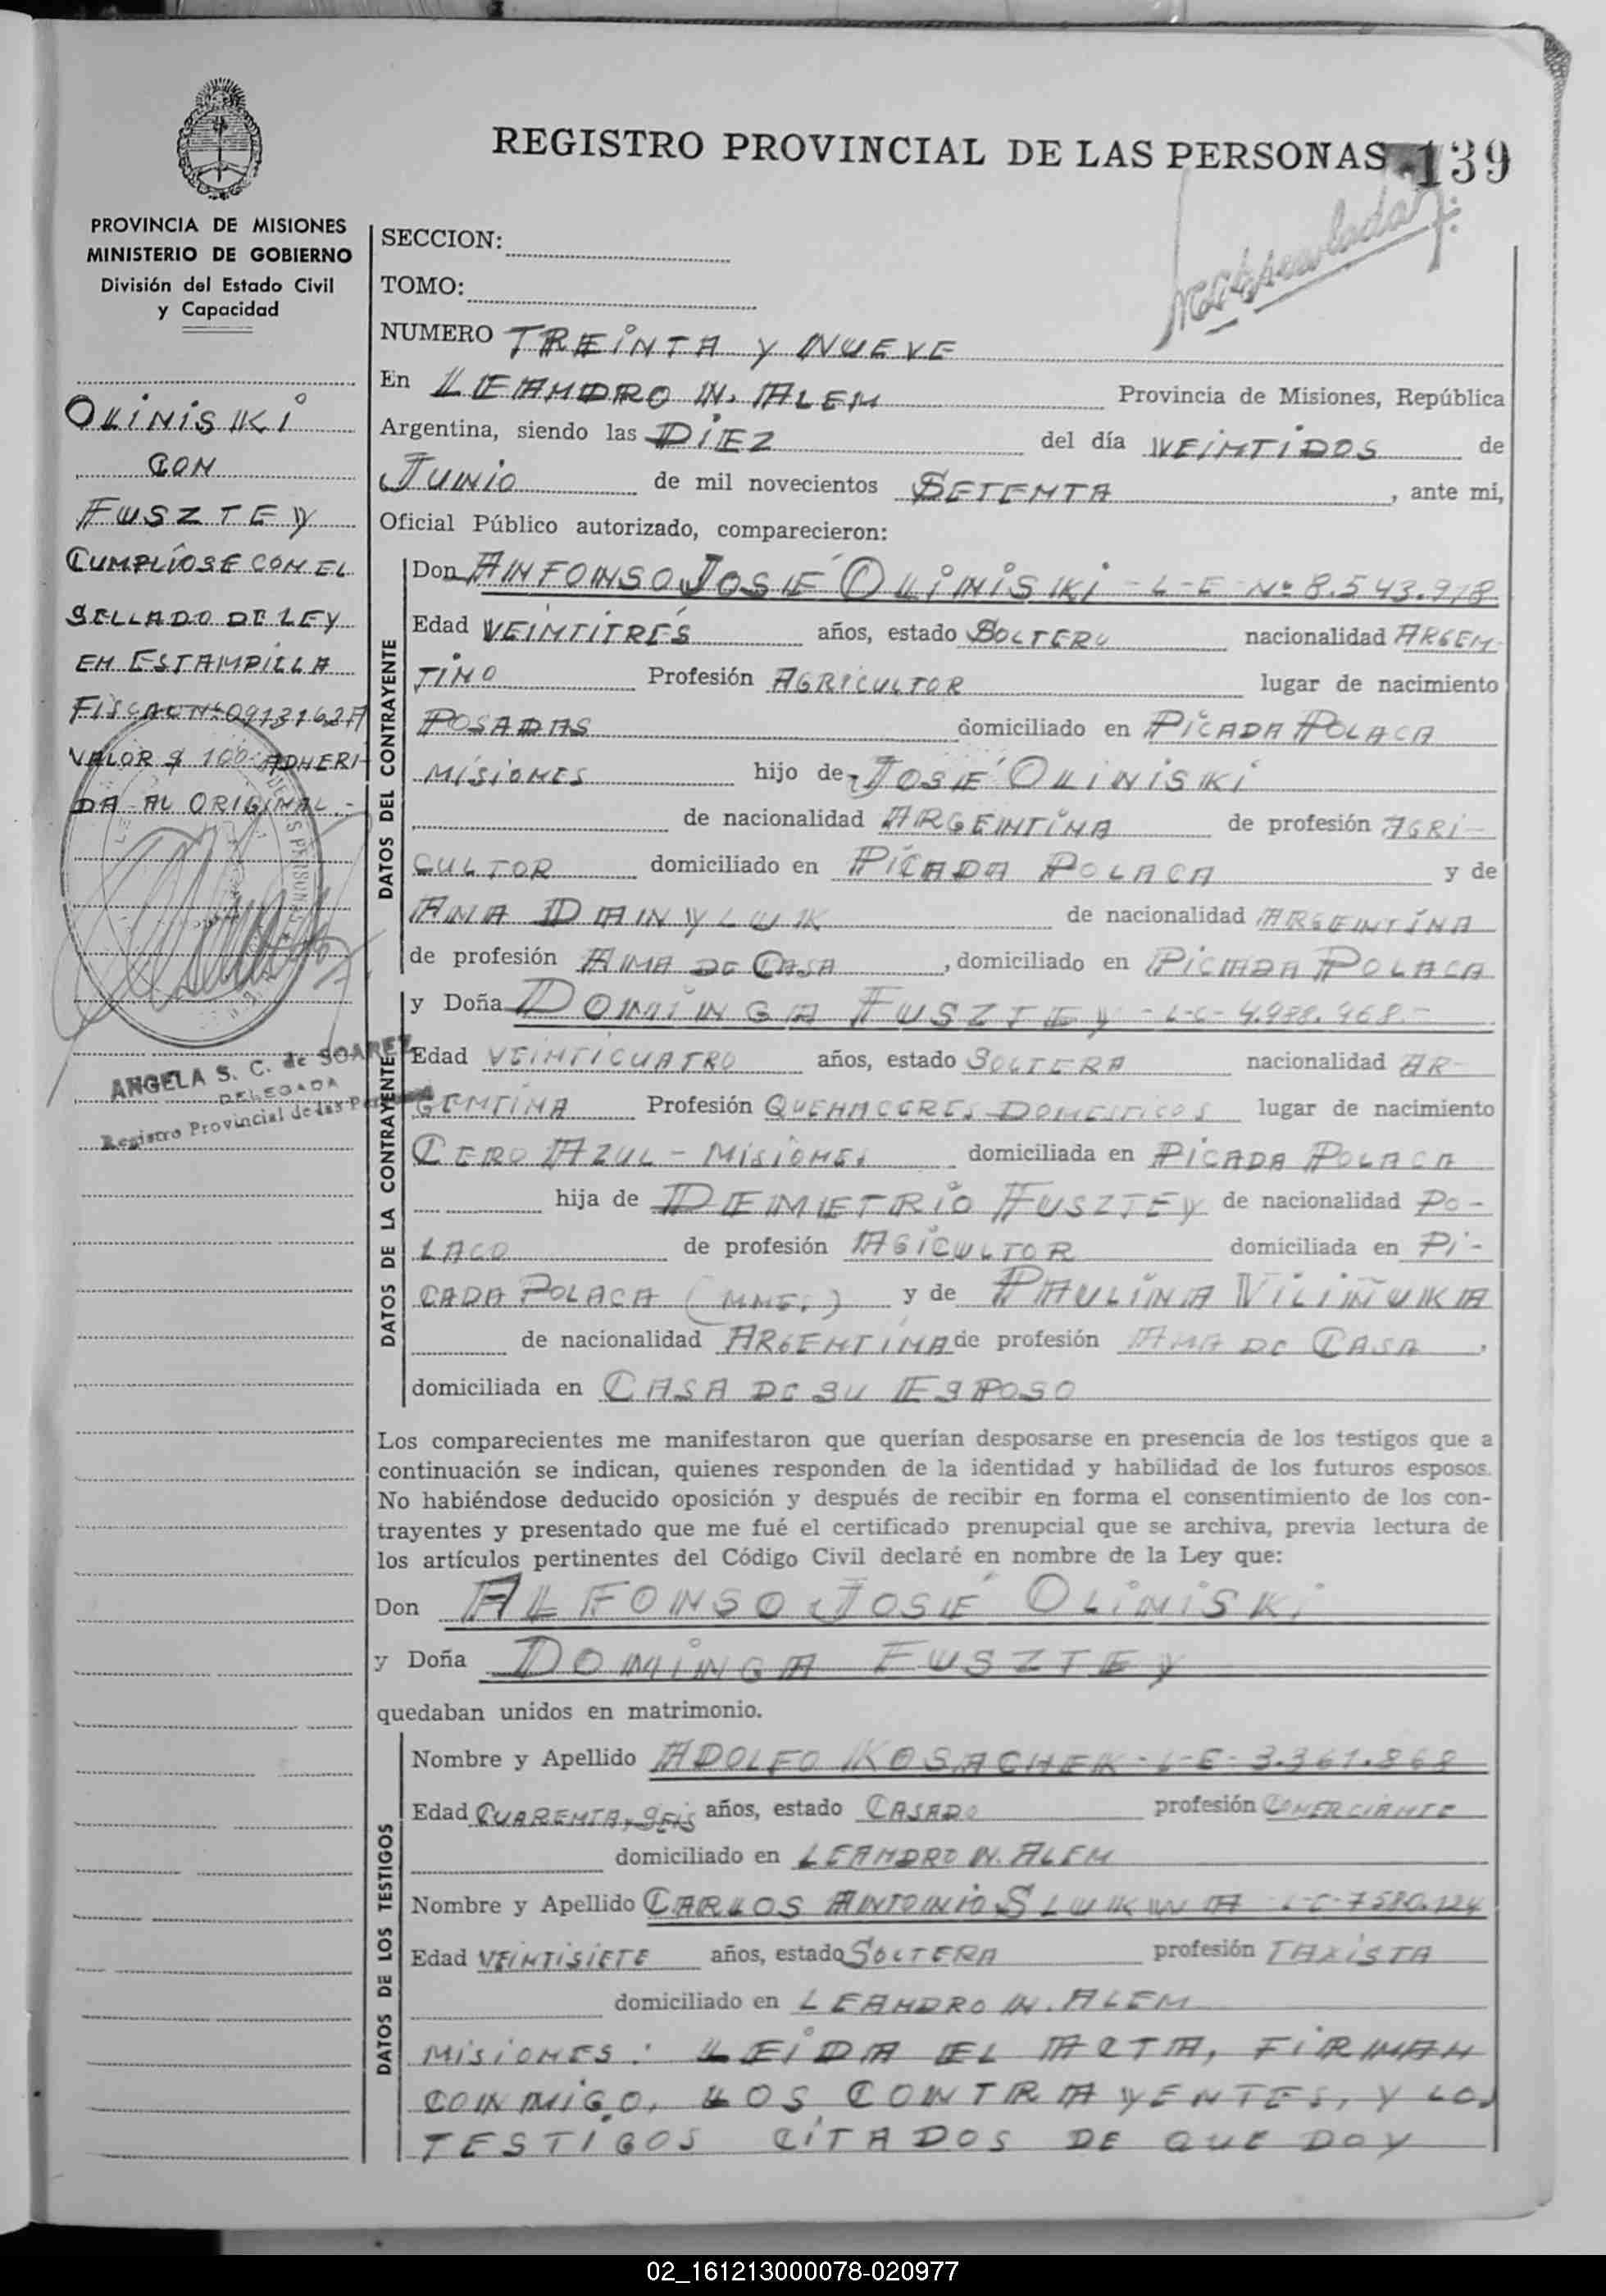 REGISTRO PROVINCIAL DE LAS PERSONAS 139
PROVINCIA DE MISIONES
MINISTERIO DE GOBIERNO
División del Estado Civil
y Capacidad
OLINISKI
CON
FUSZTEY
CUMPLÍOSE CON EL
SELLADO DE LEY
EN ESTAMPILLA
FISCAL Nº 0913162A
VALOR $ 100 ADHERI-
DA AL ORIGINAL.-
ANGELA S. C. de SOAREZ
DELEGADA
Registro Provincial de las Personas
SECCION:
TOMO:
NUMERO TREINTA Y NUEVE
En LEANDRO N. ALEM Provincia de Misiones, República
Argentina, siendo las DIEZ del día VEINTIDOS de
JUNIO de mil novecientos SETENTA, ante mi,
Oficial Público autorizado, comparecieron:
DATOS DEL CONTRAYENTE
Don ANFONSO JOSÉ OLINISKI - L-E- Nº 8.543.978
Edad VEINTITRÉS años, estado SOLTERO nacionalidad ARGEN-
TINO Profesión AGRICULTOR lugar de nacimiento
POSADAS domiciliado en PICADA POLACA
MISIONES hijo de JOSÉ OLINISKI
de nacionalidad ARGENTINA de profesión AGRI-
CULTOR domiciliado en PICADA POLACA y de
ANA DANYLUK de nacionalidad ARGENTINA
de profesión AMA DE CASA, domiciliado en PICADA POLACA
DATOS DE LA CONTRAYENTE
y Doña DOMINGA FUSZTEY - L-C- 4.988.968.-
Edad VEINTICUATRO años, estado SOLTERA nacionalidad AR-
GENTINA Profesión QUEHACERES DOMESTICOS lugar de nacimiento
CERO AZUL - MISIONES domiciliada en PICADA POLACA
hija de DEMETRIO FUSZTEY de nacionalidad PO-
LACO de profesión AGICULTOR domiciliada en PI-
CADA POLACA (MNES.) y de PAULINA VILIÑUKA
de nacionalidad ARGENTINA de profesión AMA DE CASA,
domiciliada en CASA DE SU ESPOSO
Los comparecientes me manifestaron que querían desposarse en presencia de los testigos que a
continuación se indican, quienes responden de la identidad y habilidad de los futuros esposos.
No habiéndose deducido oposición y después de recibir en forma el consentimiento de los con-
trayentes y presentado que me fué el certificado prenupcial que se archiva, previa lectura de
los artículos pertinentes del Código Civil declaré en nombre de la Ley que:
Don ALFONSO JOSÉ OLINISKI
y Doña DOMINGA FUSZTEY
quedaban unidos en matrimonio.
DATOS DE LOS TESTIGOS
Nombre y Apellido ADOLFO KOSACHEK - L-E- 3.361.868
Edad CUARENTA Y SEIS años, estado CASADO profesión COMERCIANTE
domiciliado en LEANDRO N. ALEM
Nombre y Apellido CARLOS ANTONIO SLUKWA L-E- 7580.124
Edad VEINTISIETE años, estado SOLTERA profesión TAXISTA
domiciliado en LEANDRO N. ALEM
MISIONES: LEIDA EL ACTA, FIRMAN
CONMIGO, LOS CONTRAYENTES, Y LOS
TESTIGOS CITADOS DE QUE DOY
02_161213000078-020977